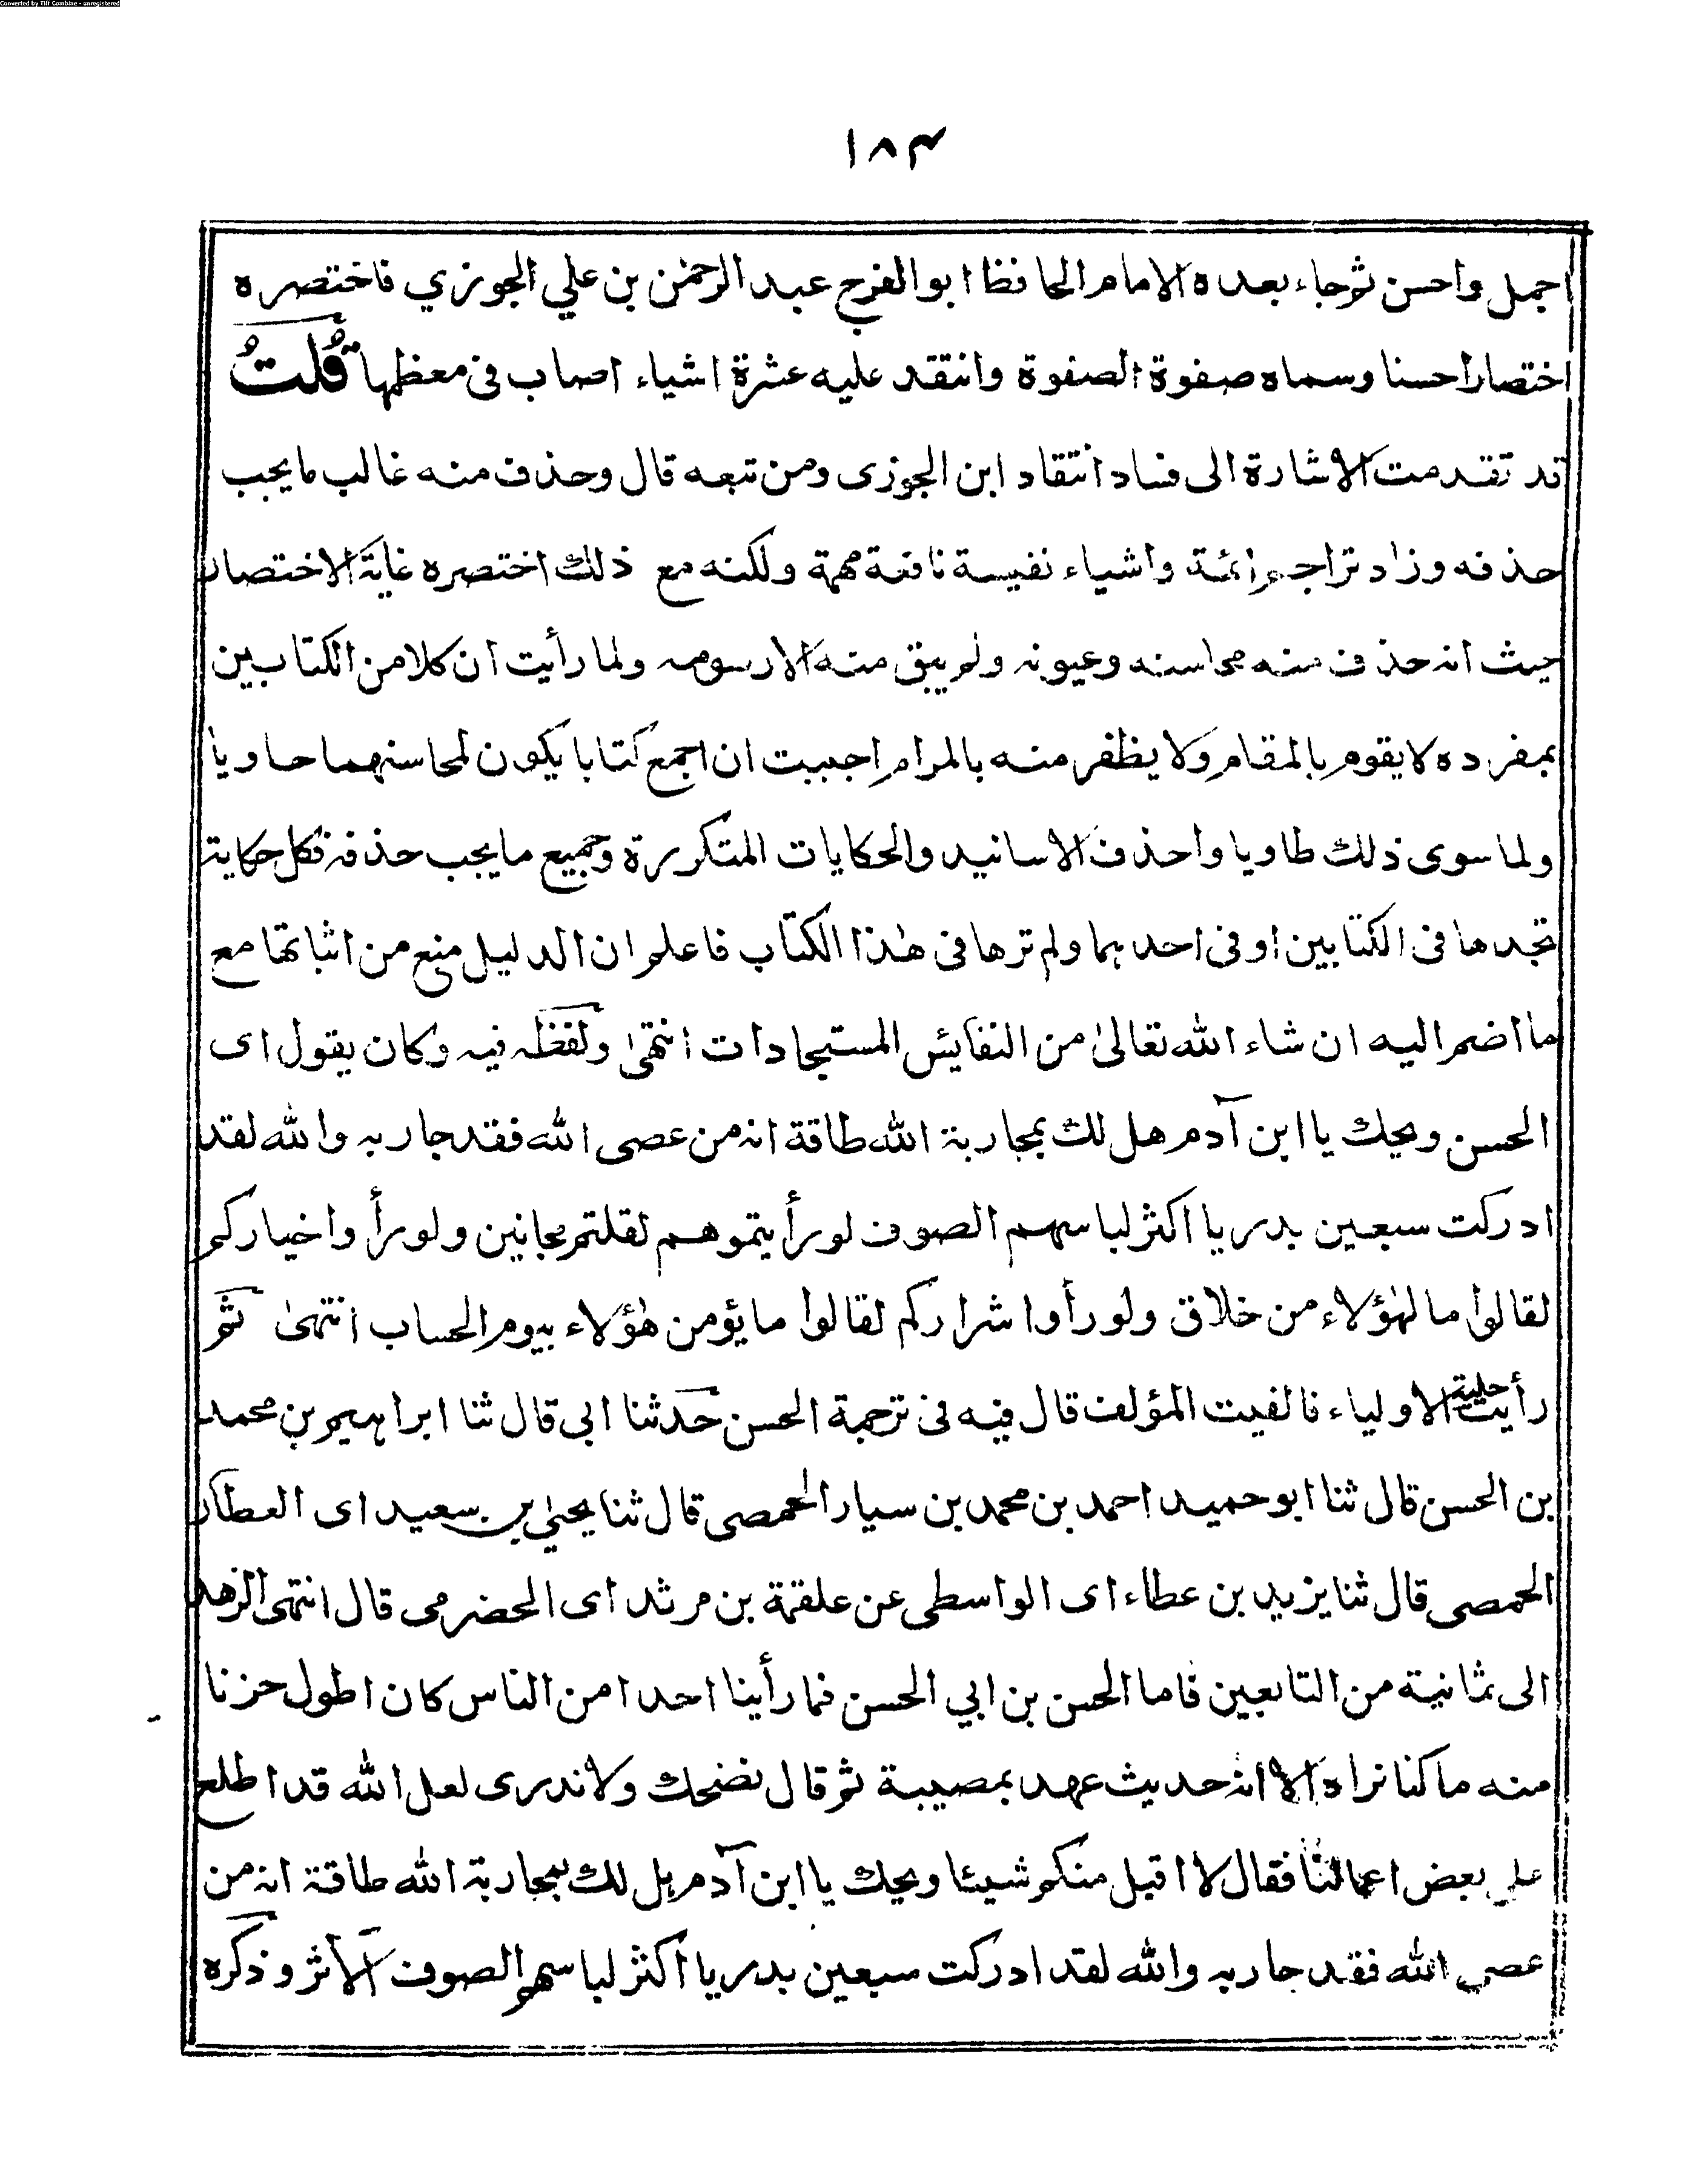 Converted by Tiff Combine - unregistered
١٨٣
اجمل واحسن ثم جاء بعده الامام الحافظ ابو الفرج عبد الرحمٰن بن علي الجوزي فاختصره
اختصارا حسنا وسماه صفوة الصفوة وانتقد عليه عشرة اشياء اصاب فى معظمها قُلتُ
قد تقدمت الاشارة الى فساد انتقاد ابن الجوزى ومن تبعه قال وحذف منه غالب ما يجب
حذفه وزاد تراجم ائمة واشياء نفيسة نافعة مهمة ولكنه مع ذلك اختصره غاية الاختصار
حيث انه حذف منه محاسنه وعيونه ولم يبق منه الا رسومه ولما رأيت ان كلا من الكتابين
بمفرده لا يقوم بالمقام ولا يظفر منه بالمرام احببت ان اجمع كتابا يكون لمحاسنهما حاويا
ولما سوى ذلك طاويا واحذف الاسانيد والحكايات المتكررة وجميع ما يجب حذفه فكل حكاية
تجدها فى الكتابين او فى احدهما ولم ترها فى هٰذا الكتاب فاعلم ان الدليل منع من اثباتها مع
ما اضم اليه ان شاء الله تعالىٰ من النفايس المستجادات انتهىٰ ولفظه فيه وكان يقول اى
الحسن ويحك يا ابن آدم هل لك بمحاربة الله طاقة انه من عصى الله فقد حاربه والله لقد
ادركت سبعين بدريا اكثر لباسهم الصوف لو رأيتموهم لقلتم مجانين ولو رأوا خياركم
لقالوا ما لهٰؤلاء من خلاق ولو رأوا شراركم لقالوا ما يؤمن هٰؤلاء بيوم الحساب انتهىٰ ثم
رأيت حلية الاولياء فالفيت المؤلف قال فيه فى ترجمة الحسن حدثنا ابى قال ثنا ابراهيم بن محمد
بن الحسن قال ثنا ابو حميد احمد بن محمد بن سيار الحمصى قال ثنا يحيىٰ بن سعيد اى العطار
الحمصى قال ثنا يزيد بن عطاء اى الواسطى عن علقمة بن مرثد اى الحضرمى قال انتهى الزهد
الى ثمانية من التابعين فاما الحسن بن ابي الحسن فما رأينا احدا من الناس كان اطول حزنا
منه ما كنا نراه الا انه حديث عهد بمصيبة ثم قال نضحك ولا ندرى لعل الله قد اطلع
على بعض اعمالنا فقال لا اقبل منكم شيئا ويحك يا ابن آدم هل لك بمحاربة الله طاقة انه من
عصى الله فقد حاربه والله لقد ادركت سبعين بدريا اكثر لباسهم الصوف الأثر وذكره